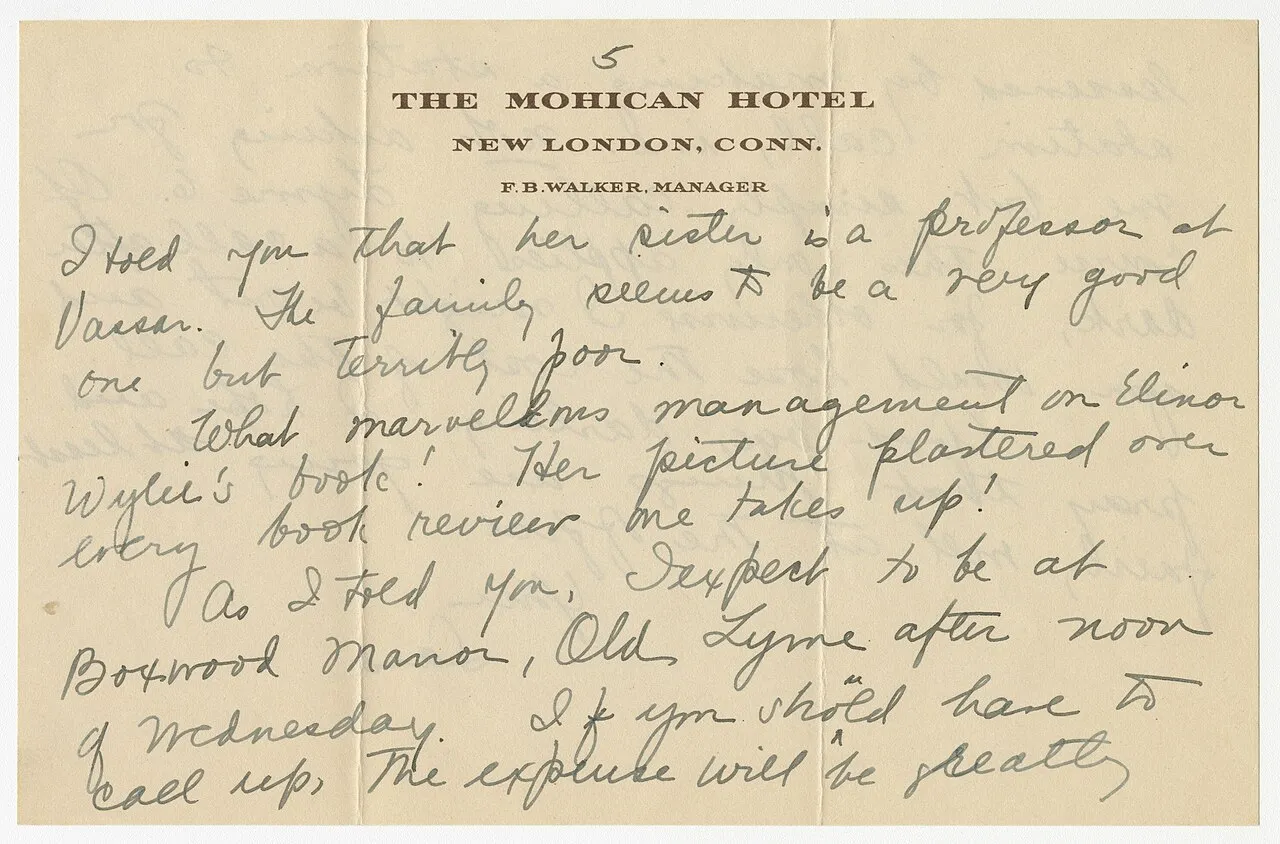 5
THE MOHICAN HOTEL
NEW LONDON, CONN.
F. B. WALKER, MANAGER
I told you that her sister is a professor at
Vassar. The family seems to be a very good
one but terribly poor.
What marvellous management on Elinor
Wylie's book! Her picture plastered over
every book review one takes up!
As I told you, I expect to be at
Boxwood Manor, Old Lyme after noon
of Wednesday. If you should have to
call up, the expense will be greatly